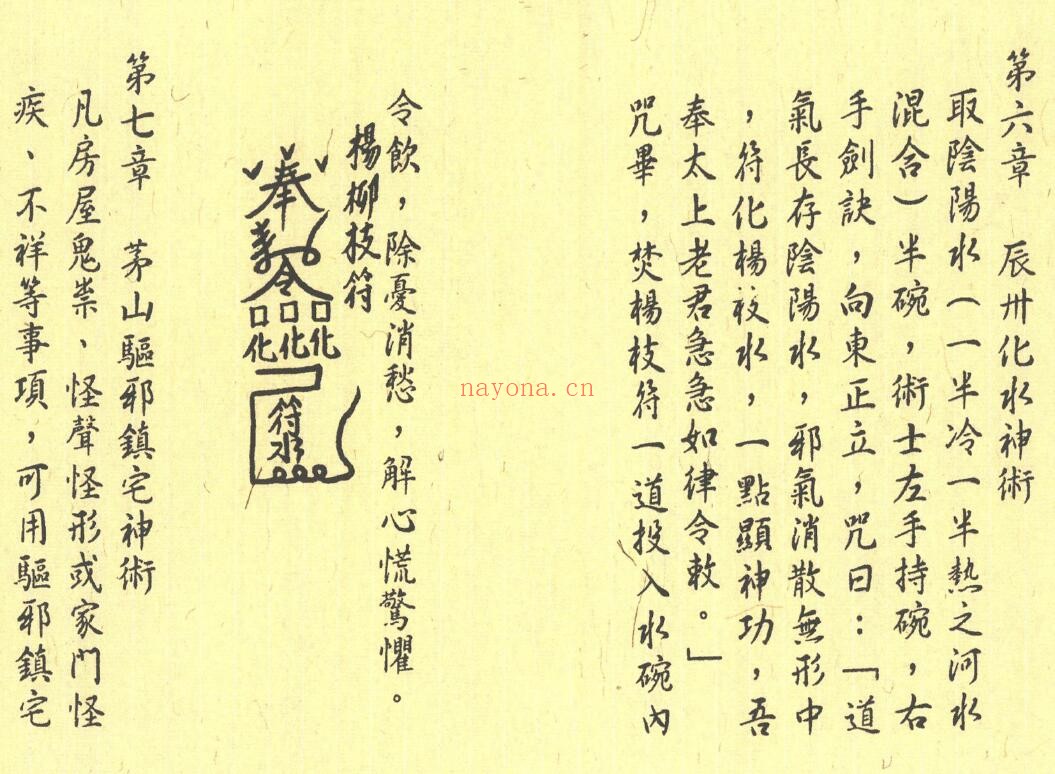 第六章　辰卅化水神術
取陰陽水（一半冷一半熱之河水
混合）半碗，術士左手持碗，右
手劍訣，向東正立，咒曰：「道
氣長存陰陽水，邪氣消散無形中
，符化楊枝水，一點顯神功，吾
奉太上老君急急如律令敕。」
咒畢，焚楊枝符一道投入水碗內
令飲，除憂消愁，解心慌驚懼。
楊柳技符
奉
令
口口口
化化化
符水
第七章　茅山驅邪鎮宅神術
凡房屋鬼祟、怪聲怪形或家門怪
疾、不祥等事項，可用驅邪鎮宅
nayona.cn